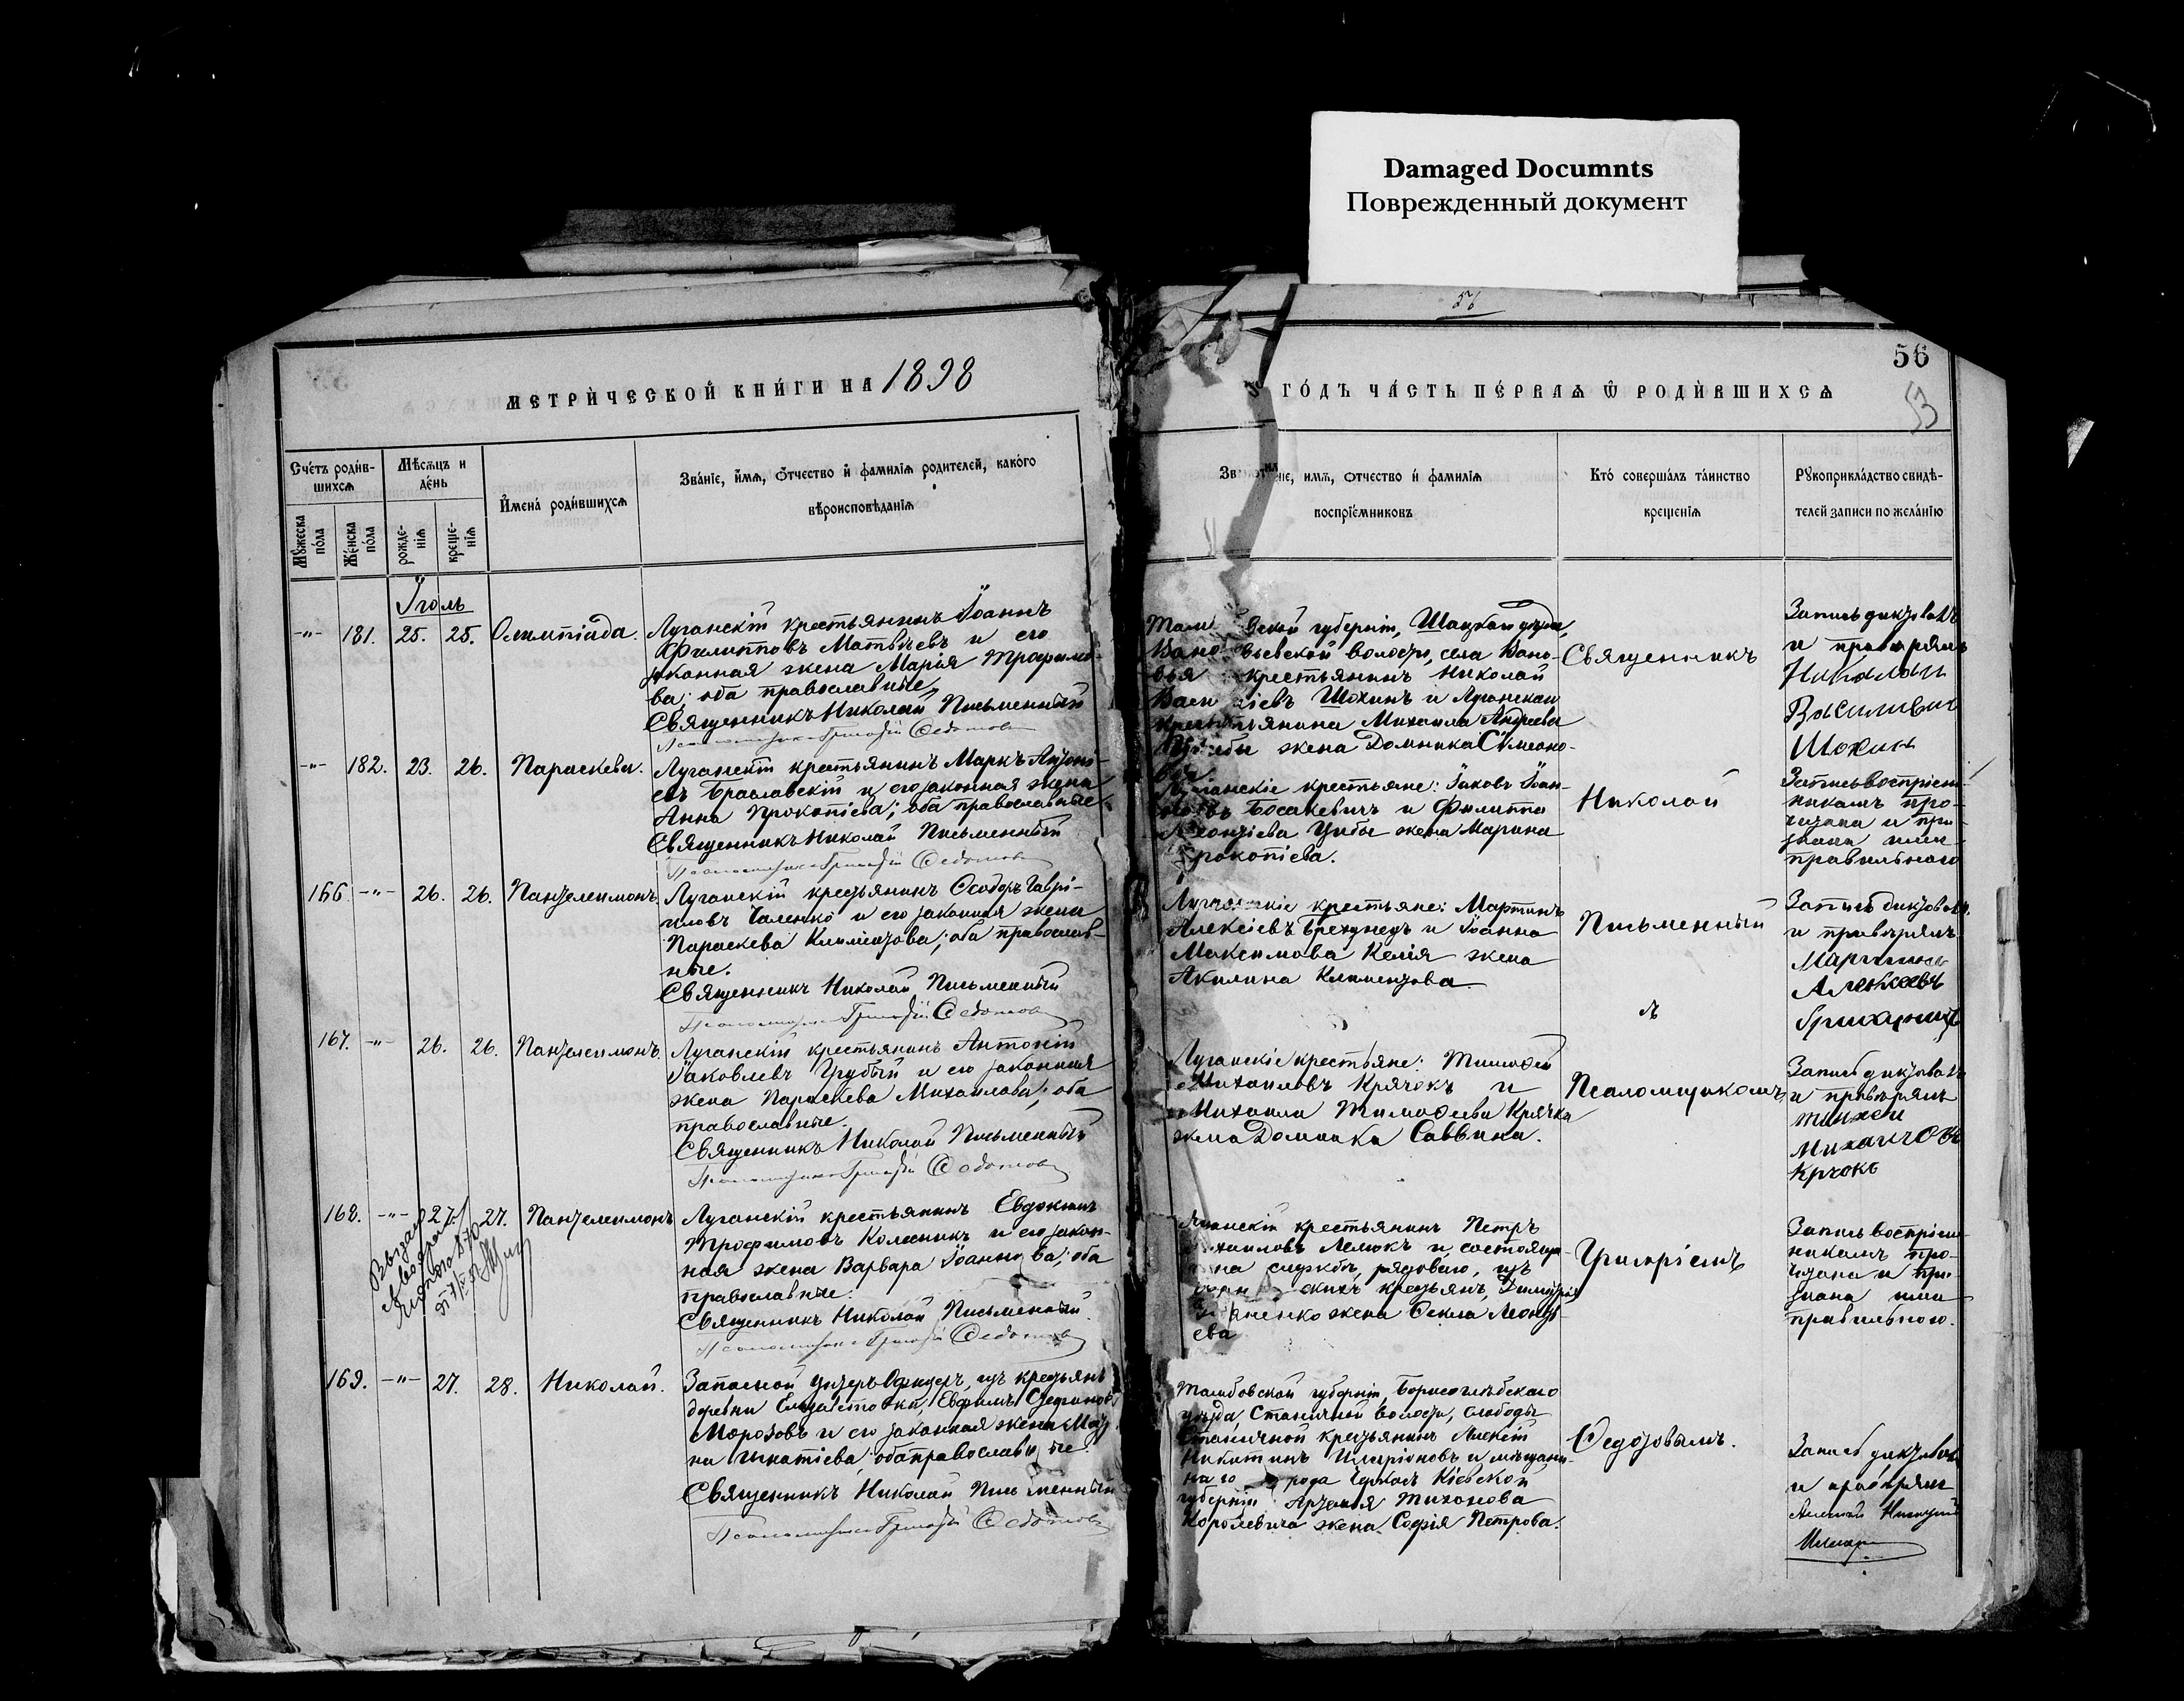 Damaged Documnts
Поврежденный документ
56
56
53
МЕТРИ́ЧЕСКОЙ КНИ́ГИ НА 1898
ГО́ДЪ ЧА́СТЬ ПЕ́РВАѦ Ѽ РОДИ́ВШИХСѦ
Сче́тъ роди́в-
шихсѧ
Мѣ́сѧцъ и
де́нь
И҆мена́ роди́вшихсѧ
Зва́нїе, и҆́мѧ, ѻ҆́тчество и҆ фами́лїѧ роди́телей, како́го
вѣроисповѣ́данїѧ
Мꙋ́жеска по́ла
Же́нска по́ла
рожде́-нїѧ
креще́-нїѧ
не, имѧ, ѻтчество и҆ фами́лїѧ
воспрїе́мниковъ
Кто́ соверша́лъ та́инство
креще́нїѧ
Рꙋкоприкла́дство свидѣ́-
телей записи по жела́нїю
Іюль
-"- 181. 25. 25. Олимпіада.
Луганскій крестьянинъ Іоаннъ
Филипповъ Матвѣевъ и его
законная жена Марія Трофимо-
ва; оба православные
Священникъ Николай Письменный
Псаломщикъ Григорій Ѳедотовъ
ской губерніи, Шацкаго уѣзда,
ьевской волости, села Вано-
вья крестьянинъ Николай
Васи іевъ Шохинъ и Луганскаго
крестьянина Михаила Андреева
жена Домника Симеоно-
ва
Священникъ
Запись диктовалъ
и провѣрялъ
Николай
Василивич
Шохин
-"- 182. 23. 26. Параскева.
Луганскій крестьянинъ Маркъ Антоні-
евъ Браславскій и его законная жена
Анна Прокопіева; оба православные
Священникъ Николай Письменный
Псаломщикъ Григорій Ѳедотовъ
Луганскіе крестьяне: Іаковъ Іоан-
новъ Босакевичъ и Филиппа
Леонтіева Цыбы жена Марина
Прокопіева.
Николай
Запись воспріем-
никамъ про-
читана и при-
знана ими
правильного
166. -"- 26. 26. Пантелеимонъ
Луганскій крестьянинъ Ѳеодоръ Гаврі-
иловъ Чаленко и его законная жена
Параскева Климентова; оба православ-
ные.
Священникъ Николай Письменный
Псаломщикъ Григорій Ѳедотовъ
Луганскіе крестьяне: Мартинъ
Алексіевъ и Іоанна
Максимова Келія жена
Акилина Климентова.
Письменный
Запись диктовалъ
и провѣрялъ
Мартинъ
Алексеевъ
съ
167. -"- 26. 26. Пантелеимонъ
Луганскій крестьянинъ Антоній
Іаковлевъ Грубый и его законная
жена Параскева Михаилова; оба
православные.
Священникъ Николай Письменный
Псаломщикъ Григорій Ѳедотовъ
Луганскіе крестьяне: Тимоѳей
Михаиловъ Крячокъ и
Михаила Тимоѳеева Крячка
жена Домника Саввина.
Псаломщикомъ
Запись диктовалъ
и провѣрялъ
Михаилов
Крчокъ
168. -"- 27. 27. Пантелеимонъ
Луганскій крестьянинъ Евдокимъ
Трофимовъ Колесникъ и его закон-
ная жена Варвара Іоаннова; оба
православные.
Священникъ Николай Письменный
Псаломщикъ Григорій Ѳедотовъ
Луганскій крестьянинъ Петръ
Михаиловъ Лелюкъ и состояща-
го на службѣ, рядового, изъ
скихъ крестьянъ, Димитрія
жена Ѳекла Леонть-
ева
Григоріемъ
Запись воспріем-
никамъ про-
читана и при-
знана ими
правильного.
169. -"- 27. 28. Николай.
Запасной унтеръ-офицеръ, изъ крестьянъ
деревни Елизаветовки, Евфимъ Стефановъ
Морозовъ и его законная жена Мат
на Игнатіева; оба православные.
Священникъ Николай Письменный
Псаломщикъ Григорій Ѳедотовъ
Тамбовской губерніи, Борисоглѣбскаго
уѣзда, Станичной волости, слободы
Станичной крестьянинъ Алексѣй
Никитинъ Иларіоновъ и мѣщани-
на города Черкасъ Кіевской
губерніи Артемія Тихонова
Королевича жена Софія Петрова.
Ѳедотовымъ.
Запись диктовалъ
и провѣрялъ